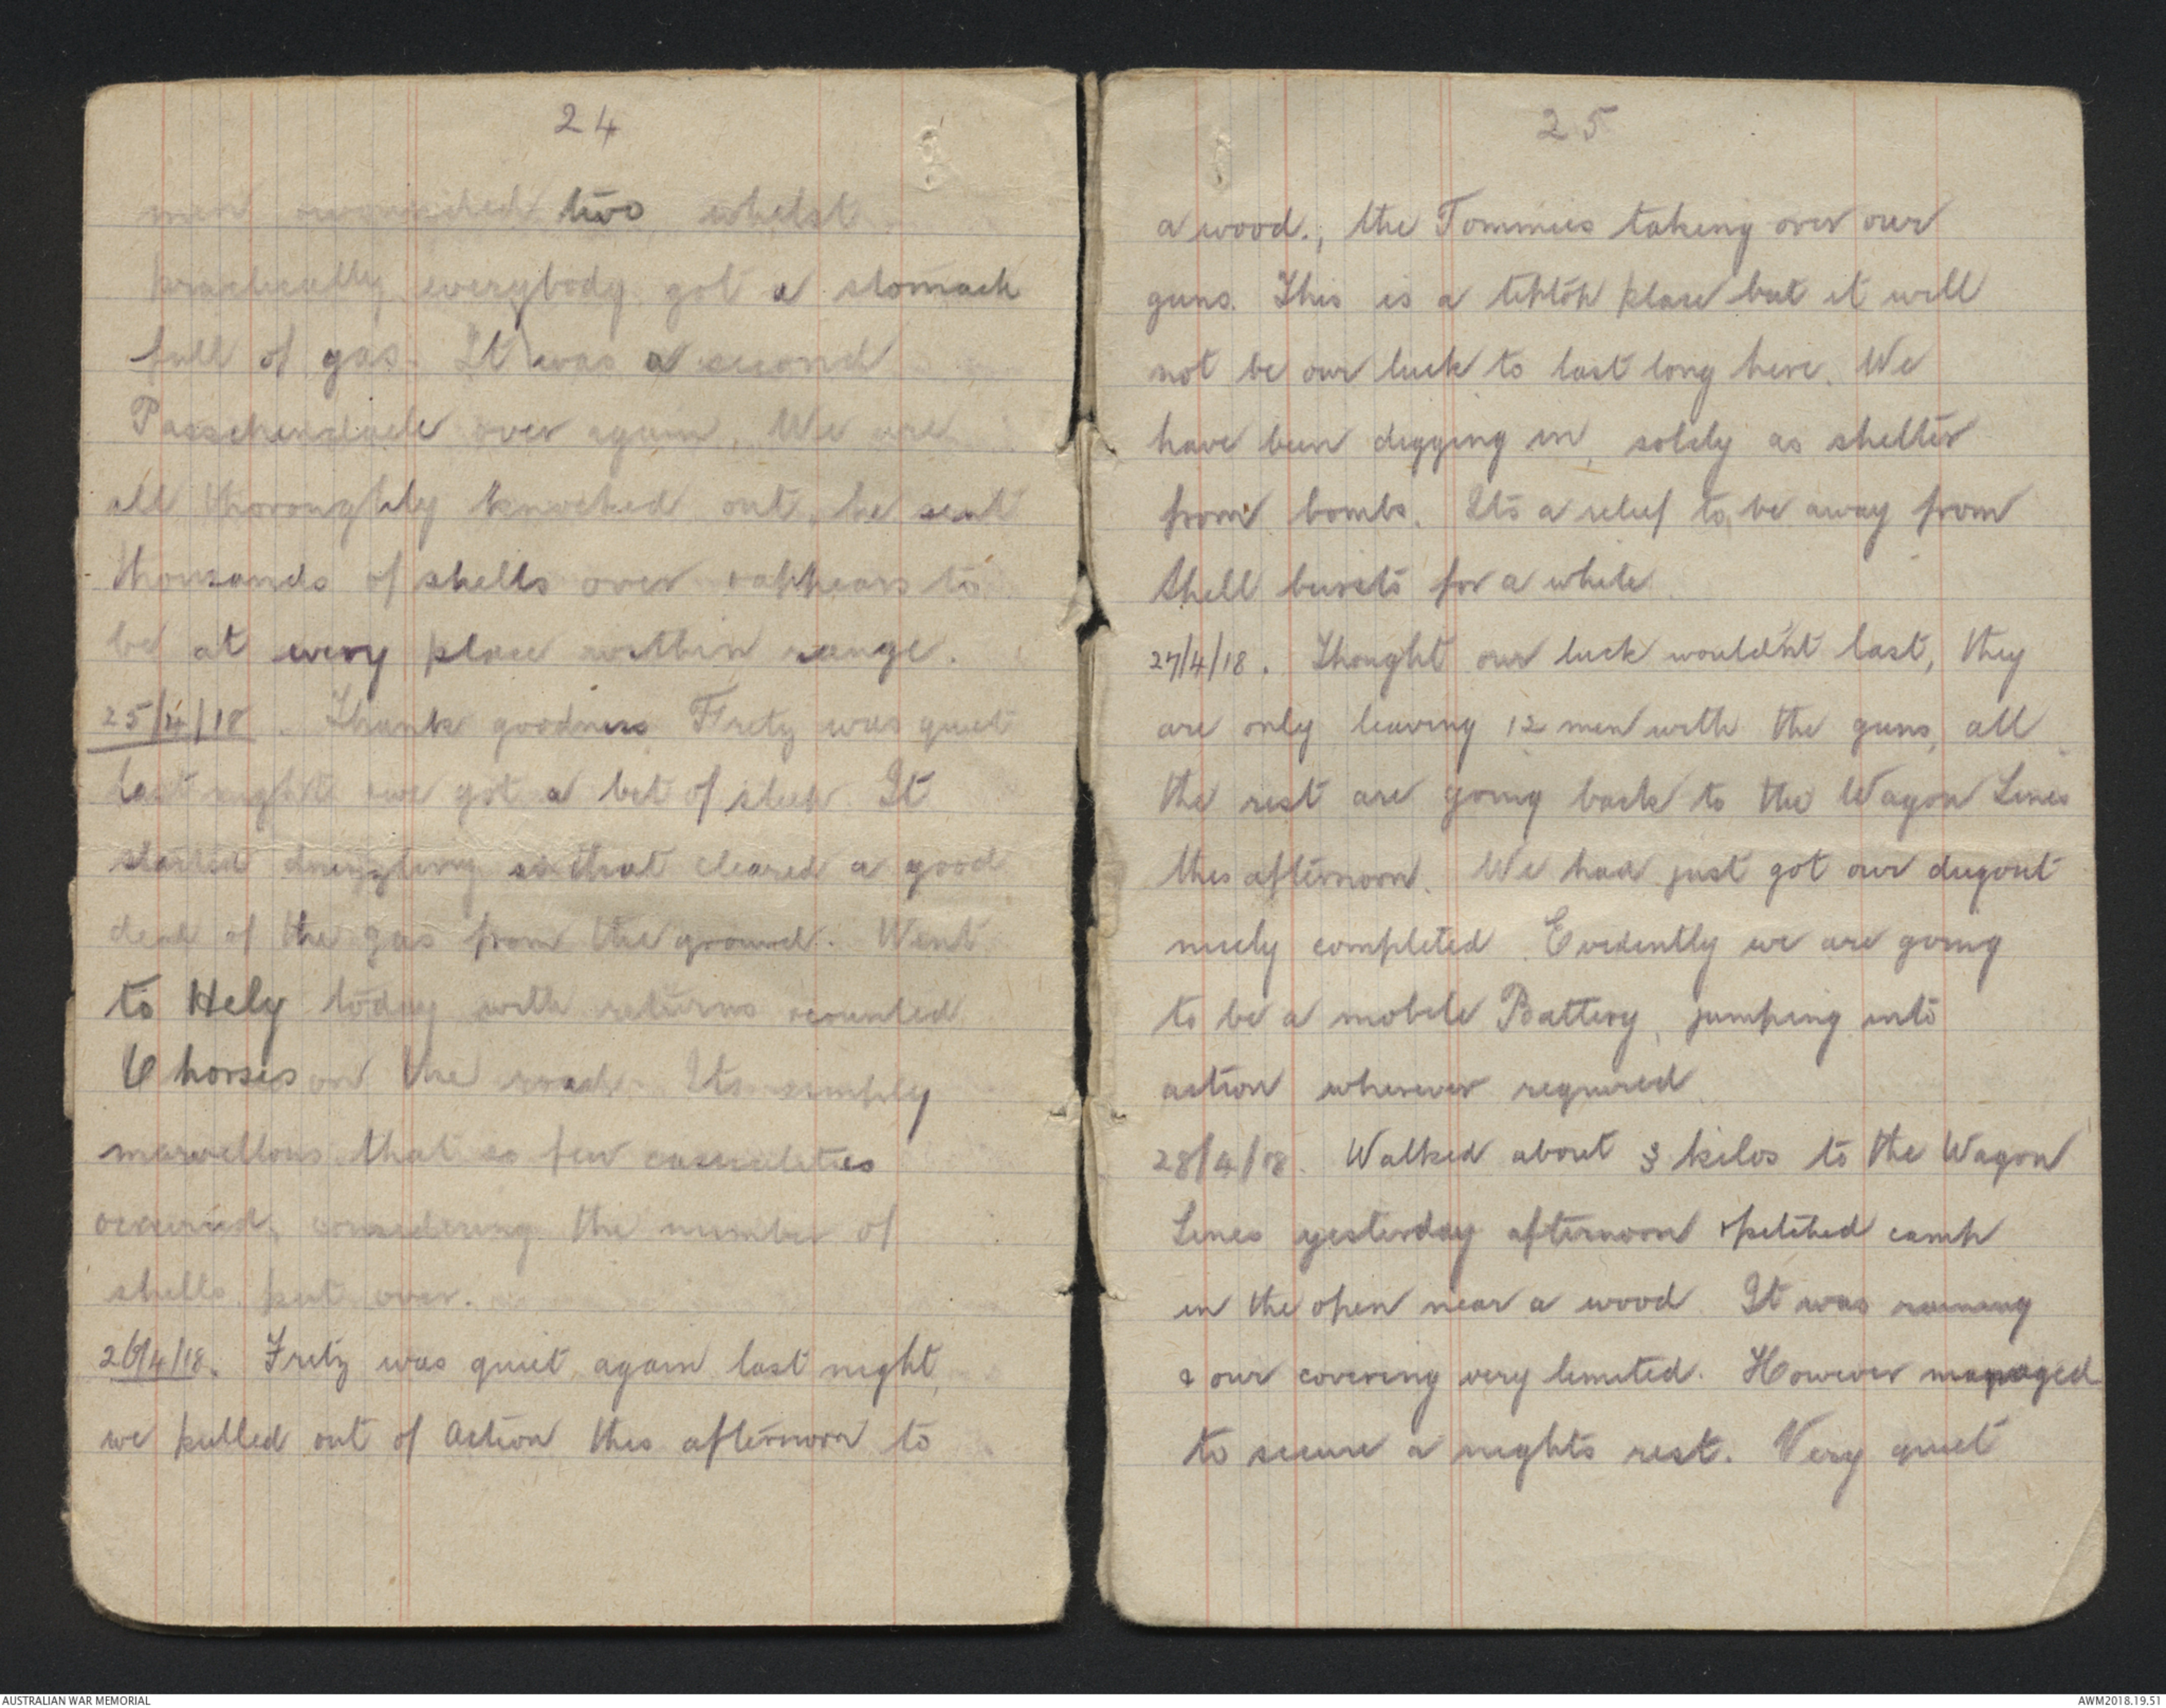 24
men wounded two whilst
practically everybody got a stomach
full of gas. It was a second
Passchendaele over again. We are
all thoroughly knocked out, he sent
thousands of shells over & appears to
be at every place within range.
25/4/18. Thank goodness Fritz was quiet
last night & we got a bit of sleep. It
started drizzling so that cleared a good
deal of the gas from the ground. Went
to Hely today with returns & counted
6 horses on the road. Its simply
marvellous that so few casualities
occurred, considering the number of
shells put over.
26/4/18. Fritz was quiet again last night,
we pulled out of action this afternoon to
25
a wood., the Tommies taking over our
guns. This is a tiptop place but it will
not be our luck to last long here. We
have been digging in, solely as shelter
from bombs. Its a relief to be away from
shell bursts for a while.
27/4/18. Thought our luck would'nt last, they
are only leaving 12 men with the guns, all
the rest are going back to the Wagon Lines
this afternoon. We had just got our dugout
nicely completed. Evidently we are going
to be a mobile Battery, jumping into
action wherever required.
28/4/18. Walked about 3 kilos to the Wagon
Lines yesterday afternoon & pitched camp
in the open near a wood. It was raining
& our covering very limited. However managed
to secure a nights rest. Very quiet
AUSTRALIAN WAR MEMORIAL
AWM2018.19.51